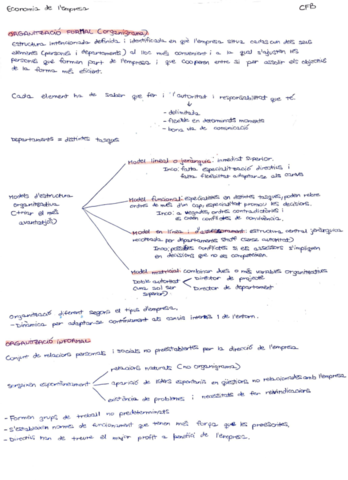 Economia de l'empresa
CFB
ORGANITZACIÓ FORMAL (organigrama)
Estructura intencionada definida i identificada en què l'empresa situa cadascun dels seus
elements (persones i departaments) al lloc més convenient i a la qual s'ajusten les
persones que formen part de l'empresa i que cooperen entre si per assolir els objectius
de la forma més eficient.
Cada element ha de saber que fer i l'autoritat i responsabilitat que té.
- delimitada
- flexible en determinats moments
- bona via de comunicació
Departaments = distintes tasques
Models d'estructura
organitzativa
(triar el més
avantatjós)
Model lineal o jeràrquic: immediat superior.
Inco: falta especialització directius i
falta flexibilitat adaptar-se als canvis
Model funcional: especialistes en distintes tasques, poden rebre
ordres de més d'un cap, especialitat prendre les decisions.
Inco: a vegades ordres contradictòries i
es creen conflictes de convivència.
Model en línia i d'assessorament: estructura central jeràrquica
recolzada per departaments staff (sense autoritat)
Inco: possibles conflictes si els assessors s'impliquen
en decisions que no els competeixen.
Model matricial: combinar dues o més variables organitzatives
Doble autoritat
Director de projecte
(una sol ser
Director de departament
superior)
Organització diferent segons el tipus d'empresa.
- Dinàmica per adaptar-se contínuament als canvis interns i de l'entorn.
ORGANITZACIÓ INFORMAL
Conjunt de relacions personals i socials no preestablertes per la direcció de l'empresa
Sorgeixen espontàniament
relacions naturals (no organigrama)
aparició de líders espontanis en qüestions no relacionades amb l'empresa
existència de problemes i necessitats de fer reivindicacions
- Formen grups de treball no predeterminats
- S'estableixen normes de funcionament que tenen més força que les preexistents.
- Directius han de treure el major profit a benefici de l'empresa.